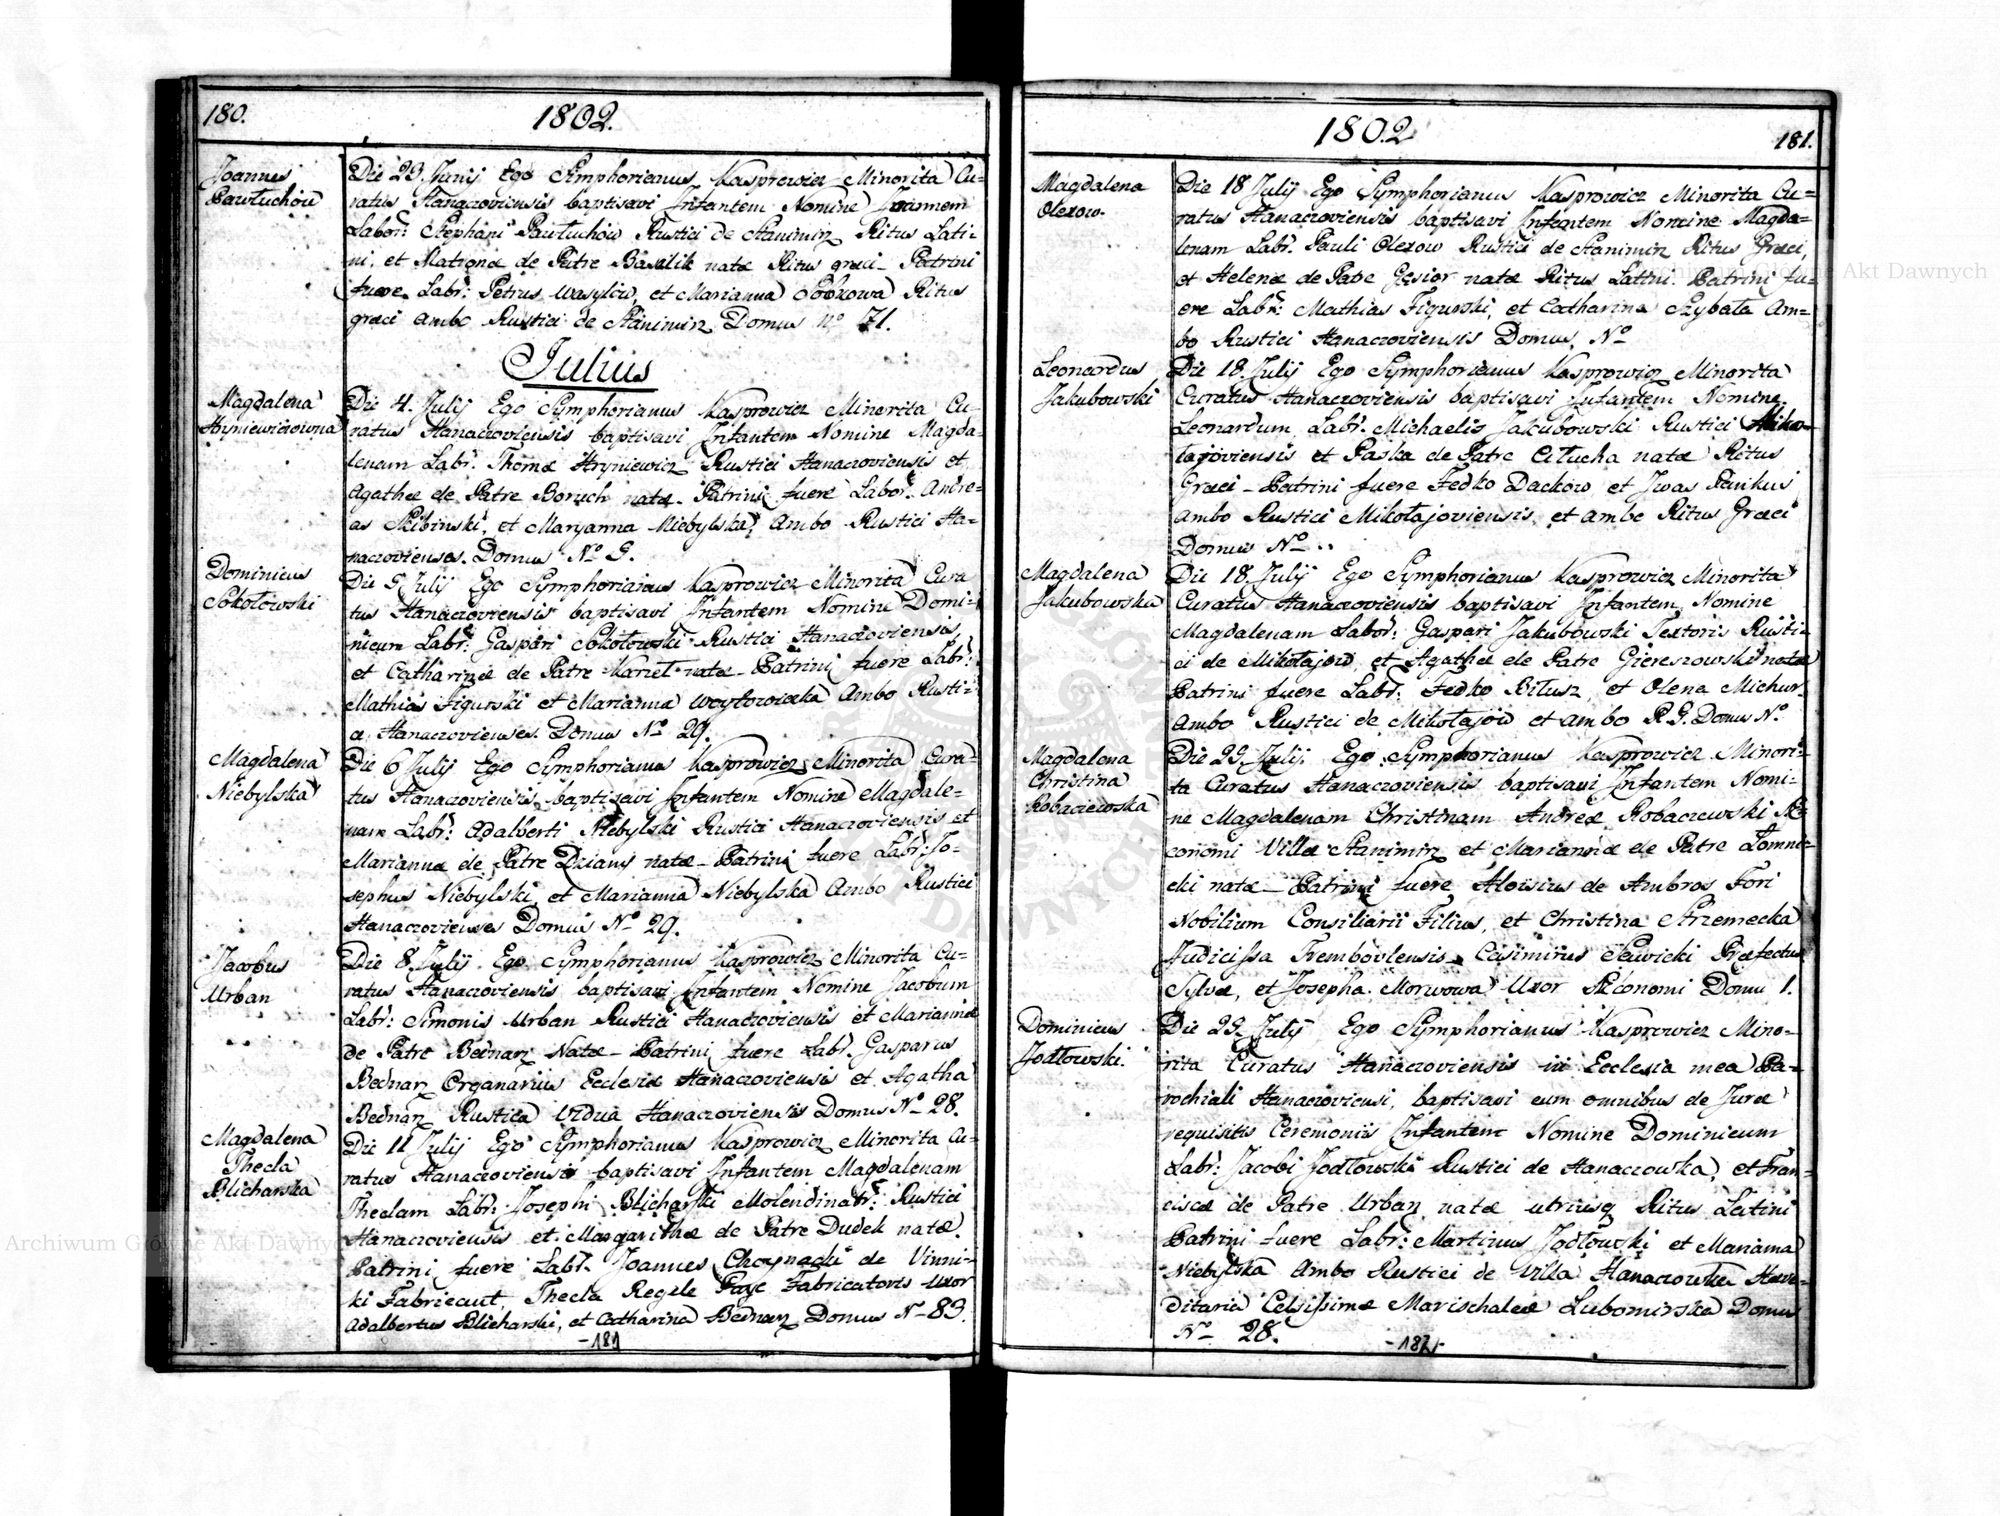 180.
1802.
Joannes
Pawłuchów
Die 29. Junij Ego Symphorianus Kasprowicz Minorita Cu-
ratus Hanaczoviensis baptisavi Infantem Nomine Joannem
Labor: Stephani Pawłuchów Rustici de Stanimirz Ritus Lati-
ni, et Matronæ de Patre Basilik natæ Ritus græci - Patrini
fuere Labr: Petrus Wasylów, et Marianna Ritus
græci ambo Rustici de Stanimirz Domus No 71.
Julius
Magdalena
Hryniewiczowna
Die 4. Julij Ego Symphorianus Kasprowicz Minorita Cu-
ratus Hanaczoviensis baptisavi Infantem Nomine Magda-
lenam Labr. Thomæ Hryniewicz Rustici Hanaczoviensis et
Agathæ de Patre Boruch natæ - Patrini fuere Labor: Andre-
as Skibinski, et Maryanna Niebylska, Ambo Rustici Ha-
naczovienses. Domus No 9.
Dominicus
Sokołowski
Die 5 Julij Ego Symphorianus Kasprowicz Minorita Cura
tus Hanaczoviensis baptisavi Infantem Nomine Domi-
nicum Labr: Gaspari Sokołowski Rustici Hanaczoviensis,
et Catharinæ de Patre natæ - Patrini fuere Labr:
Mathias Figurski et Marianna Ambo Rusti-
ci Hanaczovienses. Domus No 29.
Magdalena
Niebylska
Die 6 Julij Ego Symphorianus Kasprowicz Minorita Cura-
tus Hanaczoviensis baptisavi Infantem Nomine Magdale-
nam Labr: Adalberti Niebylski Rustici Hanaczoviensis et
Mariannæ de Patre Dziany natæ - Patrini fuere Labr: Jo-
sephus Niebylski, et Marianna Niebylska Ambo Rustici
Hanaczovienses Domus No 29.
Jacobus
Urban
Die 8 Julij Ego Symphorianus Kasprowicz Minorita Cu-
ratus Hanaczoviensis baptisavi Infantem Nomine Jacobum
Labr: Simonis Urban Rustici Hanaczoviensis et Mariannæ
de Patre Bednarz Natæ - Patrini fuere Labr. Gasparus
Bednarz Organarius Ecclesiæ Hanaczoviensis et Agatha
Bednarz Rustica Vidua Hanaczoviensis Domus No 28.
Magdalena
Thecla
Blicharska
Die 11 Julij Ego Symphorianus Kasprowicz Minorita Cu-
ratus Hanaczoviensis baptisavi Infantem Magdalenam
Theclam Labr: Josephi Blicharski Molendinatr: Rustici
Hanaczoviensis et Margarithæ de Patre Dudek natæ.
Patrini fuere Labr. Joannes Choynacki de Vinni-
ki Fabricant, Thecla Regele Fabricatoris uxor
Adalbertus Blicharski, et Catharina Bednarz Domus No 83.
1802
181.
Magdalena
Olexow.
Die 18 Julij Ego Symphorianus Kasprowicz Minorita Cu-
ratus Hanaczoviensis baptisavi Infantem Nomine Magda-
lenam Labr. Pauli Olexow Rustici de Stanimirz Ritus Græci,
et Helenæ de Patre Gęsior natæ Ritus Latini. Patrini fu-
ere Labr: Mathias Figurski, et Catharina Szybata Am-
bo Rustici Hanaczoviensis Domus No
Leonardus
Jakubowski
Die 18. Julij Ego Symphorianus Kasprowicz Minorita
Curatus Hanaczoviensis baptisavi Infantem Nomine
Leonardum Labr. Michaelis Jakubowski Rustici Miko-
łajoviensis et Paska de Patre natæ Ritus
Græci - Patrini fuere Fedko Dackow et
Ambo Rustici Mikołajoviensis, et ambo Ritus Græci
Domus No
Magdalena
Jakubowska
Die 18. Julij Ego Symphorianus Kasprowicz Minorita
Curatus Hanaczoviensis baptisavi Infantem Nomine
Magdalenam Labor: Gaspari Jakubowski Textoris Rusti-
ci de Mikołajow et Agathæ de Patre Giereszowski natæ
Patrini fuere Labr: Fedko Biłusz et Olena
Ambo Rustici de Mikołajow et ambo R. G. Domus No
Magdalena
Christina
Robaczewska
Die 29. Julij. Ego Symphorianus Kasprowicz Minori-
ta Curatus Hanaczoviensis baptisavi Infantem Nomi-
ne Magdalenam Christinam Andreæ Robaczewski Æ-
conomi Villæ Stanimirz et Mariannæ de Patre Łomni-
cki natæ - Patrini fuere Aloisius de Ambros Fori
Nobilium Consiliarii Filius, et Christina Strzemecka
Judicissa Trembovlensis, Casimirus Sawicki Præfectus
Sylvæ, et Josepha Morwowa Uxor Æconomi Domu 1.
Dominicus
Jodłowski.
Die 29. Julij Ego Symphorianus Kasprowicz Mino-
rita Curatus Hanaczoviensis in Ecclesia mea Pa-
rochiali Hanaczoviensi, baptisavi cum omnibus de Jure
requisitis Ceremoniis Infantem Nomine Dominicum
Labr: Jacobi Jodłowski Rustici de Hanaczowka, et Fran-
ciscæ de Patre Urban natæ utriusq Ritus Latini
Patrini fuere Labr: Martinus Jodłowski et Marianna
Niebylska Ambo Rustici de Villa Hanaczowka Hære-
ditaria Celsissimæ Marischaleæ Lubomirska Domus
No 28.
Archiwum Główne Akt Dawnych
Archiwum Główne Akt Dawnych